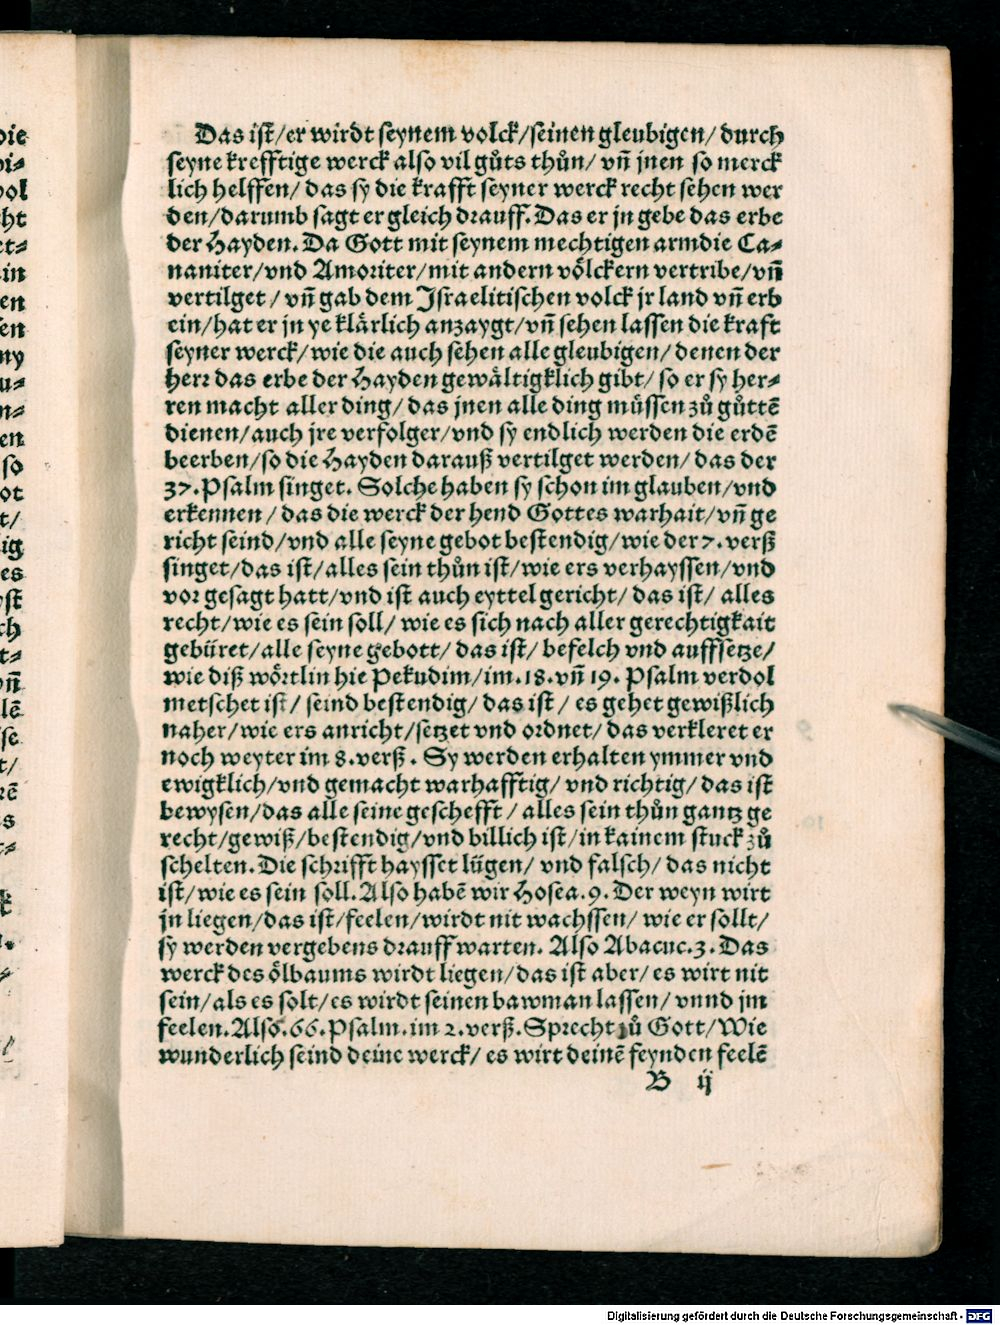 Das ist/er wirdt seynem volck/seinen gleubigen/ durch
seyne krefftige werck also vil gůts thůn/ vñ jnen so merck
lich helffen/ das sy die krafft seyner werck recht sehen wer
den/darumb sagt er gleich drauff. Das er jn gebe das erbe
der Hayden. Da Gott mit seynem mechtigen armdie Ca⸗
naniter/vnd Amoriter/mit andern vӧlckern vertribe/vñ
vertilget/ vñ gab dem Israelitischen volck jr land vñ erb
ein/hat er jn ye klärlich anzaygt/vñ sehen lassen die kraft
seyner werck/wie die auch sehen alle gleubigen/ denen der
herr das erbe der Hayden gewältigklich gibt/ so er sy her⸗
ren macht aller ding/ das jnen alle ding müssen zů gůttē
dienen/auch jre verfolger/vnd sy endlich werden die erdē
beerben/so die Hayden darauß vertilget werden/ das der
37.Psalm singet. Solche haben sy schon im glauben/vnd
erkennen/ das die werck der hend Gottes warhait/vñ ge
richt seind/vnd alle seyne gebot bestendig/wie der 7. verß
singet/das ist/alles sein thůn ist/wie ers verhayssen/vnd
vor gesagt hatt/vnd ist auch eyttel gericht/ das ist/ alles
recht/wie es sein soll/ wie es sich nach aller gerechtigkait
gebüret/alle seyne gebott/ das ist/ befelch vnd auffsetze/
wie diß wörtlin hie Pekudim/im.18.vñ 19. Psalm verdol
metschet ist/ seind bestendig/ das ist/ es gehet gewißlich
naher/wie ers anricht/setzet vnd ordnet/ das verkleret er
noch weyter im 8.verß. Sy werden erhalten ymmer vnd
ewigklich/vnd gemacht warhafftig/ vnd richtig/ das ist
bewysen/das alle seine geschefft/ alles sein thůn gantz ge
recht/gewiß/bestendig/vnd billich ist/in kainem stuck zů
schelten. Die schrifft haysset lügen/ vnd falsch/ das nicht
ist/wie es sein soll. Also habē wir Hosea.9. Der weyn wirt
jn liegen/das ist/feelen/wirdt nit wachssen/ wie er sollt/
sy werden vergebens drauff warten. Also Abacuc.3. Das
werck des ӧlbaums wirdt liegen/das ist aber/ es wirt nit
sein/als es solt/es wirdt seinen bawman lassen/ vnnd jm
feelen. Also.66.Psalm.im 2.verß. Sprecht zů Gott/Wie
wunderlich seind deine werck/ es wirt deinē feynden feelē
B ij
Digitalisierung gefördert durch die Deutsche Forschungsgemeinschaft - DFG